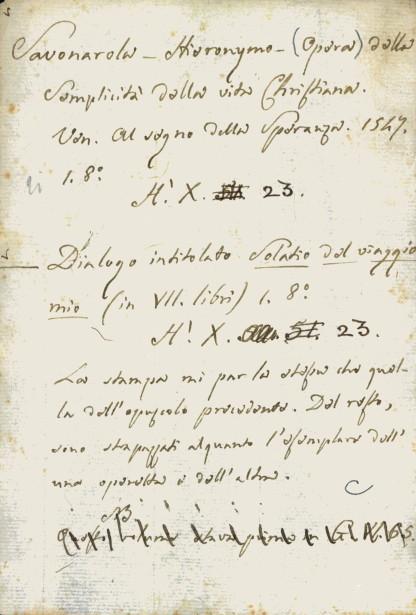 Savonarola - Hieronymo - (Opera) della
Semplicità della vita Christiana.
Ven. Al segno della Speranza. 1547.
1. 8°
H.' X. 23.
Dialogo intitolato Solatio del viaggio
mio (in VII. libri) 1. 8°
H.' X. 23.
La stampa mi par la stessa che quel-
la dell'opuscolo precedente. Del resto,
sono strapazzati alquanto l'esemplare dell'
una operetta e dell'altra.
NB